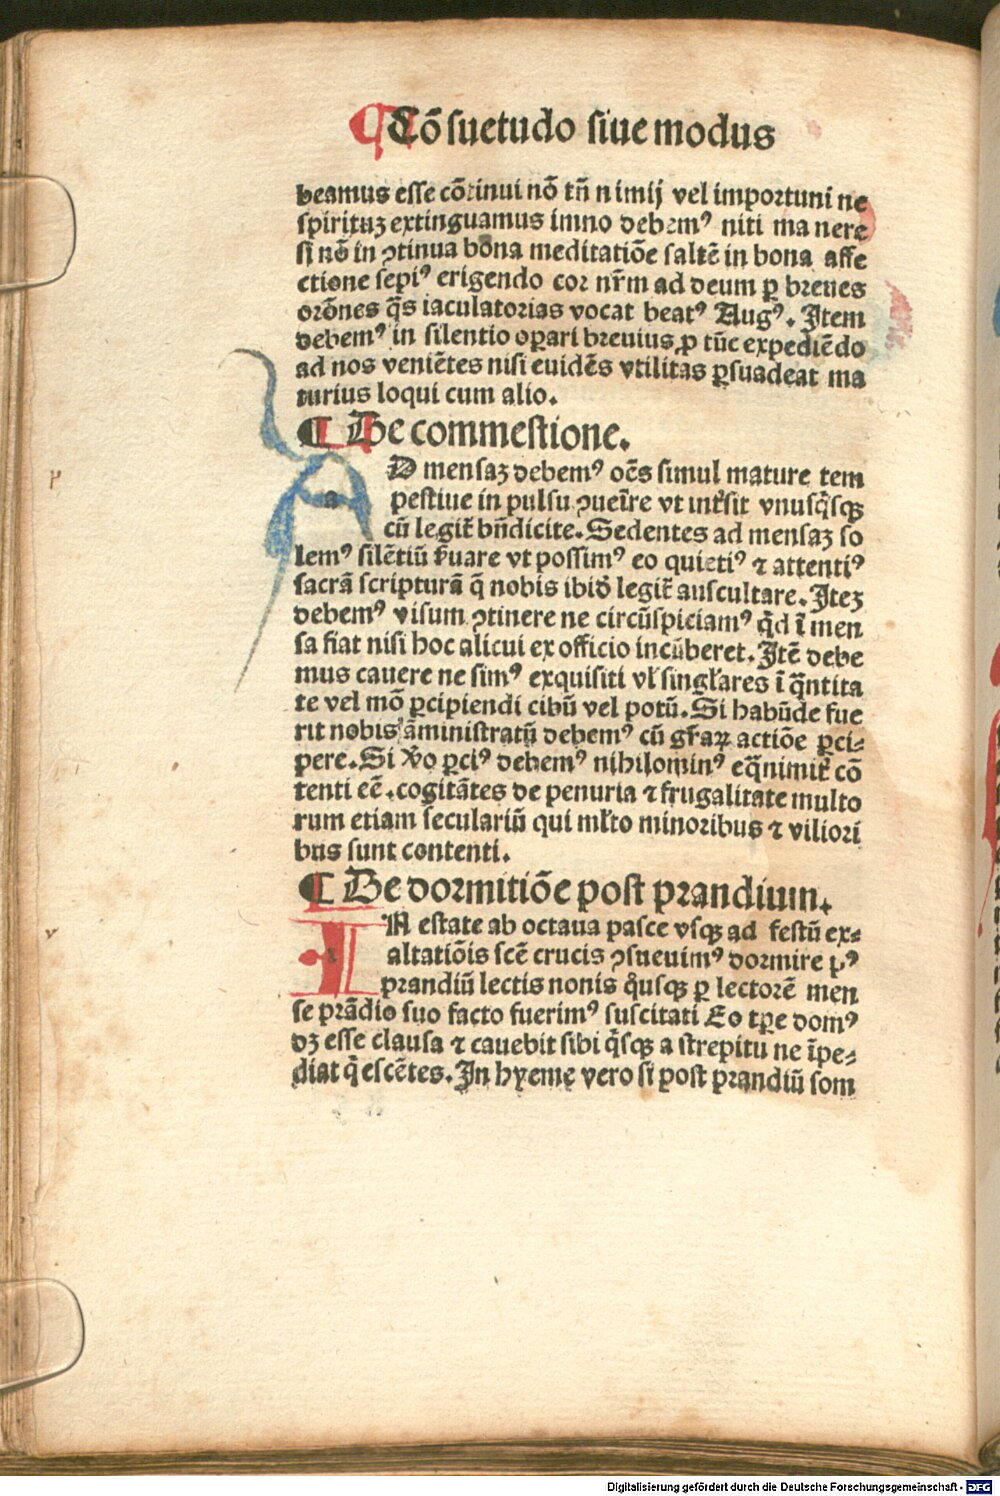 ¶ Cōsuetudo siue modus
beamus esse cōtinui nō tn̄ nimij vel importuni ne
spirituꝫ extinguamus imno debemꝰ niti manere
si nō in ꝯtinua bona meditatiōe saltē in bona affe
ctione sepiꝰ erigendo cor nr̄m ad deum ꝑ breues
orōnes q̄s iaculatorias vocat beatꝰ Augꝰ. Item
debemꝰ in silentio oꝑari breuius ꝓ tūc expediēdo
ad nos veniētes nisi euidēs vtilitas ꝑsuadeat ma
turius loqui cum alio.
¶ De commestione.
aD mensaꝫ debemꝰ oēs simul mature tem
pestiue in pulsu ꝯuenīre vt intersit vnusq̄sqꝫ
cū legit̄ bn̄dicite. Sedentes ad mensaꝫ so
lemꝰ silētiū ẜuare vt possimꝰ eo quietiꝰ ⁊ attentiꝰ
sacrā scripturā q̄ nobis ibid̄ legit̄ auscultare. Iteꝫ
debemꝰ visum ꝯtinere ne circūspiciamꝰ qd̄ ī men
sa fiat nisi hoc alicui ex officio incūberet. Itē debe
mus cauere ne simꝰ exquisiti vl̄ singl̄ares ī q̄ntita
te vel mō ꝑcipiendi cibū vel potū. Si habūde fue
rit nobis āministratū debemꝰ cū gr̄aꝝ actiōe ꝑci⸗
pere. Si v̄o ꝑciꝰ debemꝰ nihilominꝰ eq̄nimit̄ cō
tenti eē. cogitātes de penuria ⁊ frugalitate multo
rum etiam seculariū qui ml̄to minoribus ⁊ viliori
bus sunt contenti.
¶ De dormitiōe post prandium.
iN estate ab octaua pasce vsqꝫ ad festū ex⸗
altatiōis scē crucis ꝯsueuimꝰ dormire pꝰ
prandiū lectis nonis qͦusqꝫ ꝑ lectorē men
se prādio suo facto fuerimꝰ suscitati Eo tꝑe domꝰ
dꝫ esse clausa ⁊ cauebit sibi q̄sqꝫ a strepitu ne īpe⸗
diat q̄escētes. In hyeme vero si post prandiū som
Digitalisierung gefördert durch die Deutsche Forschungsgemeinschaft - DFG